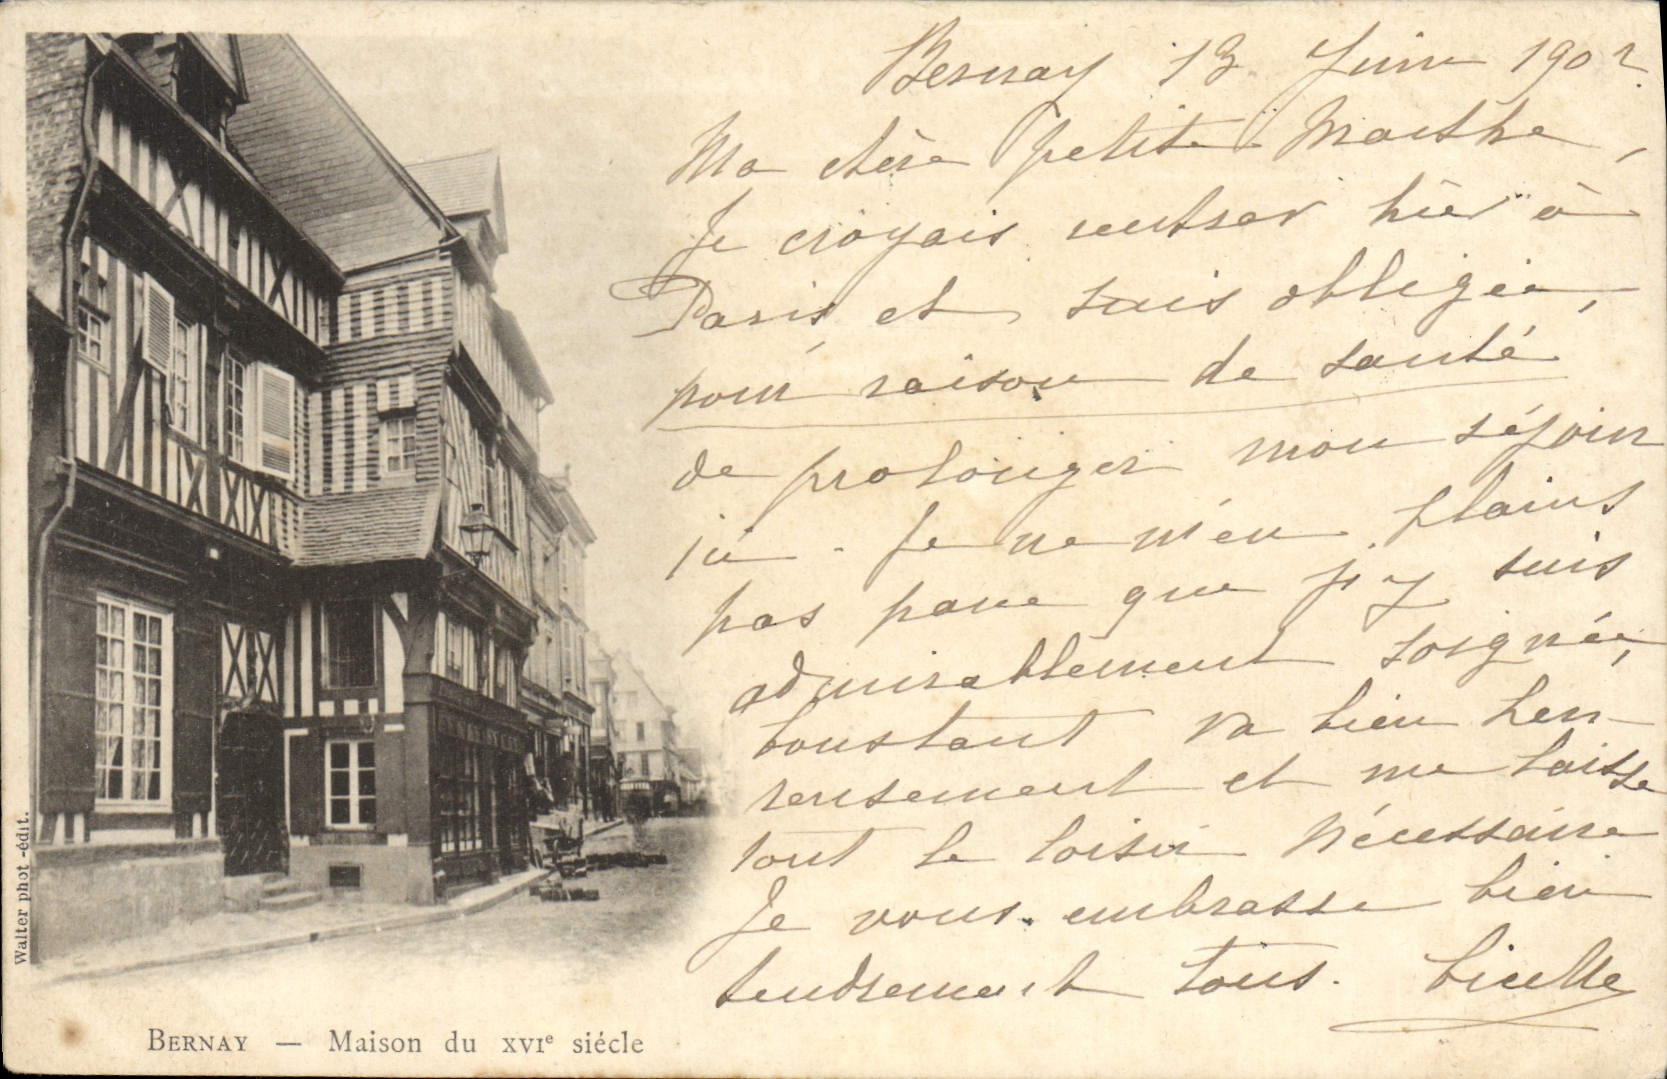 Bernay 13 Juin 1902
Ma chère petite Marthe,
Je croyais rentrer hier à
Paris et suis obligée,
pour raison de santé
de prolonger mon séjour
ici. Je ne m'en plains
pas parce que j'y suis
admirablement soignée,
Constant va bien heu-
reusement et me laisse
tout le loisir nécessaire
Je vous embrasse bien
tendrement tous.
Walter phot.-édit.
BERNAY — Maison du XVIe siécle